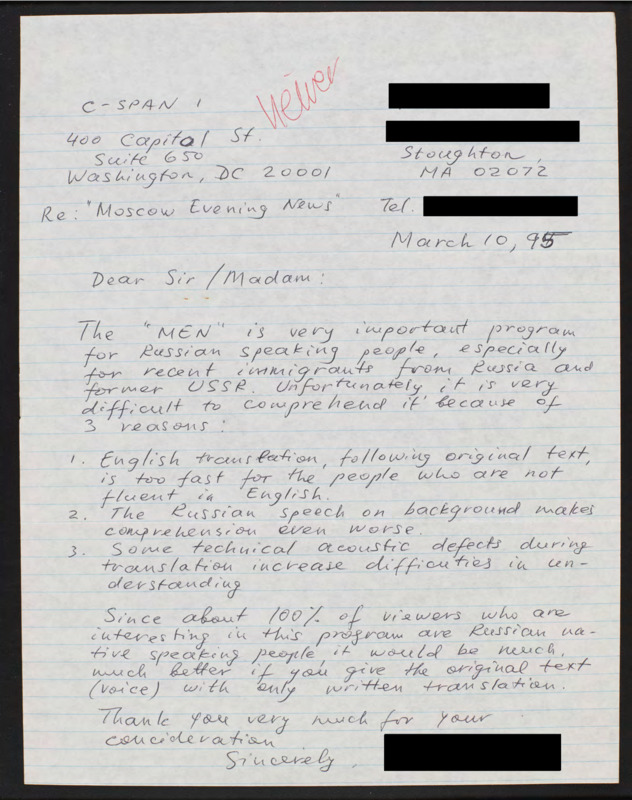 viewer
C-SPAN 1
400 Capital St.
Suite 650
Washington, DC 20001
Stoughton,
MA 02072
Re: "Moscow Evening News"
Tel.
March 10, 95
Dear Sir/Madam:
The "MEN" is very important program
for Russian speaking people, especially
for recent immigrants from Russia and
former USSR. Unfortunately it is very
difficult to comprehend it because of
3 reasons:
1. English translation, following original text,
is too fast for the people who are not
fluent in English.
2. The Russian speech on background makes
comprehension even worse.
3. Some technical acoustic defects during
translation increase difficuties in un-
derstanding
Since about 100% of viewers who are
interesting in this program are Russian na-
tive speaking people it would be much,
much better if you give the original text
(voice) with only written translation.
Thank you very much for your
concideration
Sincerely,